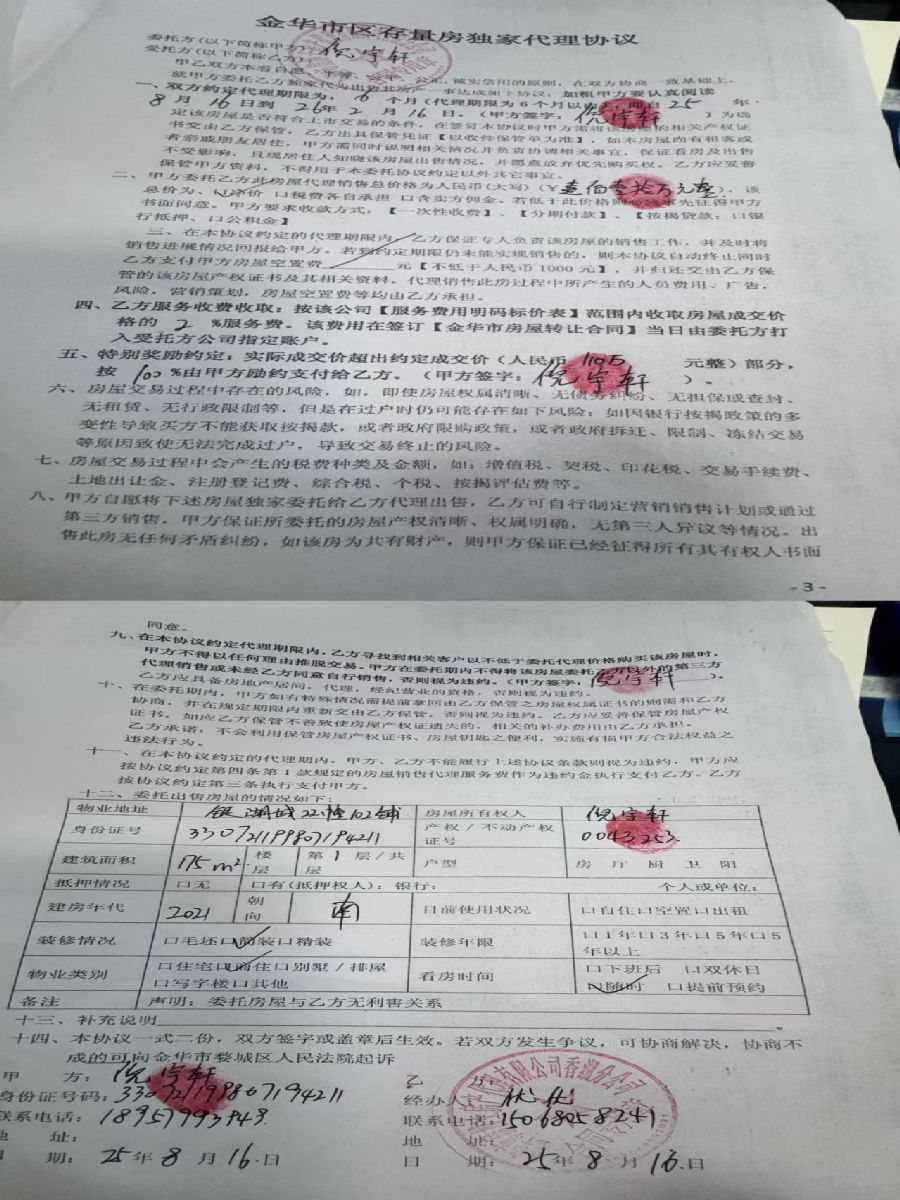 金华市区存量房独家代理协议
委托方(以下简称甲方): 倪宇轩
受托方(以下简称乙方):
甲乙双方本着自愿、平等、公正、诚实信用的原则，在双方协商一致基础上，
就甲方委托乙方独家代为出售其房产一事达成如下协议：加粗甲方要认真阅读
一、双方约定代理期限为：6 个月(代理期限为6个月以内)，即自 25 年
8 月 16 日到 26 年 2 月 16 日。(甲方签字: 倪宇轩 )为确
定该房屋是否符合上市交易的条件，在签订本协议时甲方需将该房屋的相关产权证
书交由乙方保管，乙方出具保管凭证【以收件保管单为准】，如本房屋尚有租客或
者亲戚朋友居住，甲方需同时说明相关情况并负责协调相关事宜，保证看房及出售
不受影响，且现居住人知晓该房屋出售情况，并愿意放弃优先购买权。乙方应妥善
保管甲方资料，不得用于本委托协议约定以外其它事宜。
二、甲方委托乙方此房屋代理销售总价格为人民币(大写) (￥壹佰壹拾万元整)，该
总价为、口净价 口税费各自承担 口含卖方佣金。若低于此价格则必须事先征得甲方
书面同意。甲方要求收款方式：【一次性收费】、【分期付款】、【按揭贷款：口银
行抵押、口公积金】
三、在本协议约定的代理期限内，乙方保证专人负责该房屋的销售工作，并及时将
销售进展情况回报给甲方。若到约定期限仍未能实现销售的，则本协议自动终止同时
乙方支付甲方房屋空置费 元【不低于人民币1000元】，并归还交由乙方保
管的该房屋产权证书及其相关资料。代理销售此房过程中所产生的人员费用、广告，
风险，营销策划，房屋空置费等均由乙方承担。
四、乙方服务收费收取：按该公司【服务费用明码标价表】范围内收取房屋成交价
格的 2 %服务费。该费用在签订【金华市房屋转让合同】当日由委托方打
入受托方公司指定账户。
五、特别奖励约定：实际成交价超出约定成交价(人民币 110万 元整)部分，
按 100 %由甲方励约支付给乙方。(甲方签字: 倪宇轩 )。
六、房屋交易过程中存在的风险，如，即使房屋权属清晰、无债务纠纷、无担保或查封、
无租赁、无行政限制等，但是在过户时仍可能存在如下风险：如因银行按揭政策的多
变性导致买方不能获取按揭款，或者政府限购政策，或者政府拆迁、限制、冻结交易
等原因致使无法完成过户，导致交易终止的风险。
七、房屋交易过程中会产生的税费种类及金额，如：增值税、契税、印花税、交易手续费、
土地出让金、注册登记费、综合税、个税、按揭评估费等。
八、甲方自愿将下述房屋独家委托给乙方代理出售，乙方可自行制定营销销售计划或通过
第三方销售，甲方保证所委托的房屋产权清晰、权属明确，无第三人异议等情况。出
售此房无任何矛盾纠纷，如该房为共有财产，则甲方保证已经征得所有其有权人书面
- 3 -
同意。
九、在本协议约定代理期限内，乙方寻找到相关客户以不低于委托代理价格购买该房屋时，
甲方不得以任何理由推脱交易。甲方在委托期内不得将该房屋委托乙方以外的第三方
代理销售或未经乙方同意自行销售，否则视为违约。(甲方签字: 倪宇轩 )。
乙方应具备房地产居间，代理，经纪营业的资格，否则视为违约。
十、在委托期内，甲方如有特殊情况需提前拿回由乙方保管之房屋权属证书的则需和乙方
协商，并在规定期限内重新交由乙方保管，否则视为违约。乙方应妥善保管房屋产权
证书，如应乙方保管不善致使房屋产权证遗失的，相关的补办费用由乙方承担。
乙方承诺：不会利用保管房屋产权证书、房屋钥匙之便利，实施有损甲方合法权益之
违法行为。
十一、在本协议约定的代理期内，甲方、乙方不能履行上述协议条款则视为违约，甲方应
按协议约定第四条第1款规定的房屋销售代理服务费作为违约金执行支付乙方。乙方
按协议约定第三条执行支付甲方。
十二、委托出售房屋的情况如下：
物业地址 银湖城22幢102铺 房屋所有权人 倪宇轩
身份证号 330721199807194211 产权/不动产权证号 0043253
建筑面积 175m². 楼层 第1层/共 层 户型 房 厅 厨 卫 阳
抵押情况 口无 口有(抵押权人)：银行： 个人或单位：
建房年代 2021 朝向 南 目前使用状况 口自住口空置口出租
装修情况 口毛坯口简装口精装 装修年限 口1年口3年口5年口5年以上
物业类别 口住宅口商住口别墅/排屋 口写字楼口其他 看房时间 口下班后 口双休日 口随时 口提前预约
备注 声明：委托房屋与乙方无利害关系
十三、补充说明
十四、本协议一式二份，双方签字或盖章后生效。若双方发生争议，可协商解决，协商不
成的可向金华市婺城区人民法院起诉
甲 方： 倪宇轩 乙 方：
身份证号码：330721199807194211 经办人：
联系电话：18957993948 联系电话：15068058241
地 址： 地 址：
日 期：25年 8 月 16 日 日 期：25年 8 月 16 日